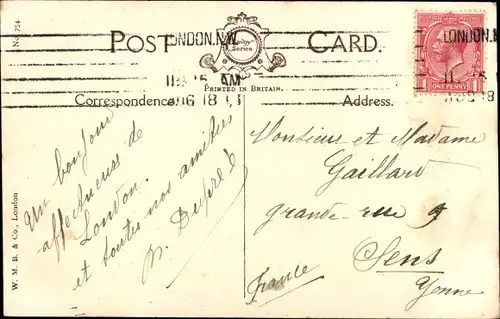 No. 754
POST CARD.
LONDON.N.W
LONDON.N.W
11.15 AM
AUG 18
PRINTED IN BRITAIN.
Correspondence
Address.
ONE PENNY
W. M. B. & Co., London
Un bonjour
affectueux de
London.
et toutes nos amitiés
Dupré
Monsieur et Madame
Gaillard
grande rue 9
Sens
Yonne
France